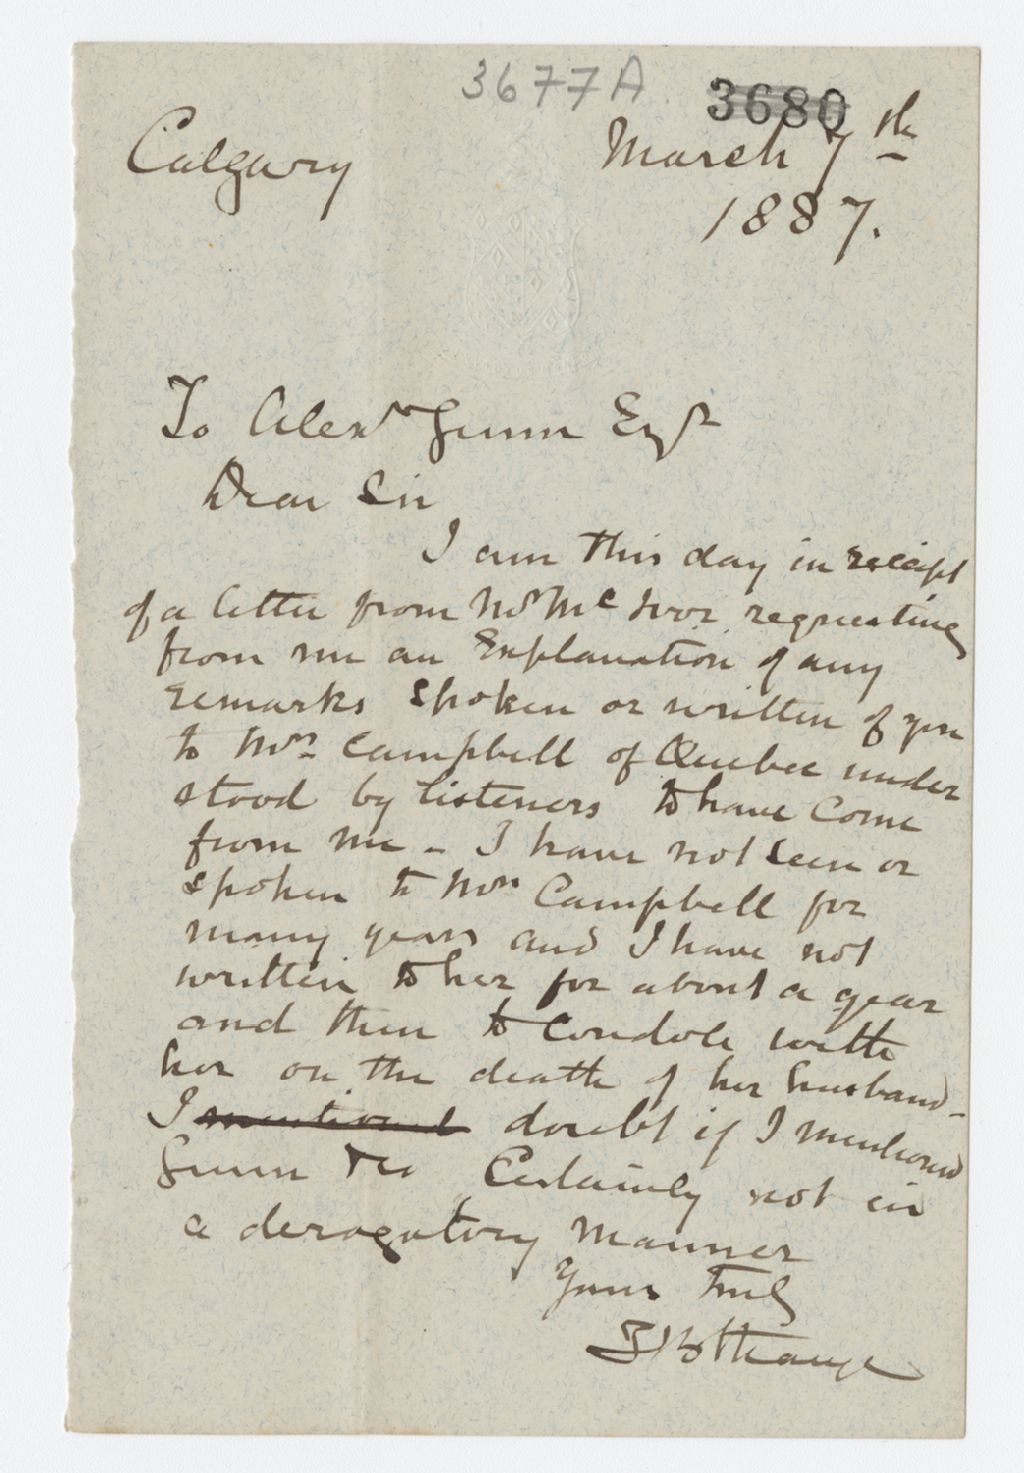 3677A 3680
Calgary March 7th
1887.
To Alexr Gunn Esqr
Dear Sir
I am this day in receipt
of a letter from Mr McIvor requesting
from me an Explanation of any
remarks spoken or written of you
to Mrs Campbell of Quebec under
stood by listeners to have come
from me - I have not seen or
spoken to Mrs Campbell for
many years and I have not
written to her for about a year
and then to condole with
her on the death of her husband -
I mentioned doubt if I mentioned
Gunn &co Certainly not in
a derogatory manner
Yours truly
TB Strange